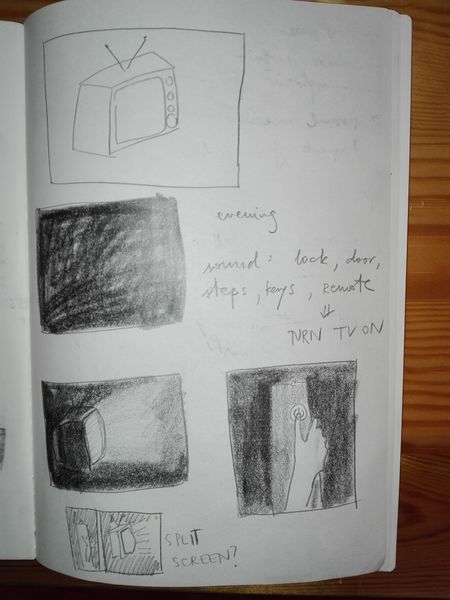 evening
sound: lock, door,
steps, keys, remote
⇓
TURN TV ON
SPLIT
SCREEN?